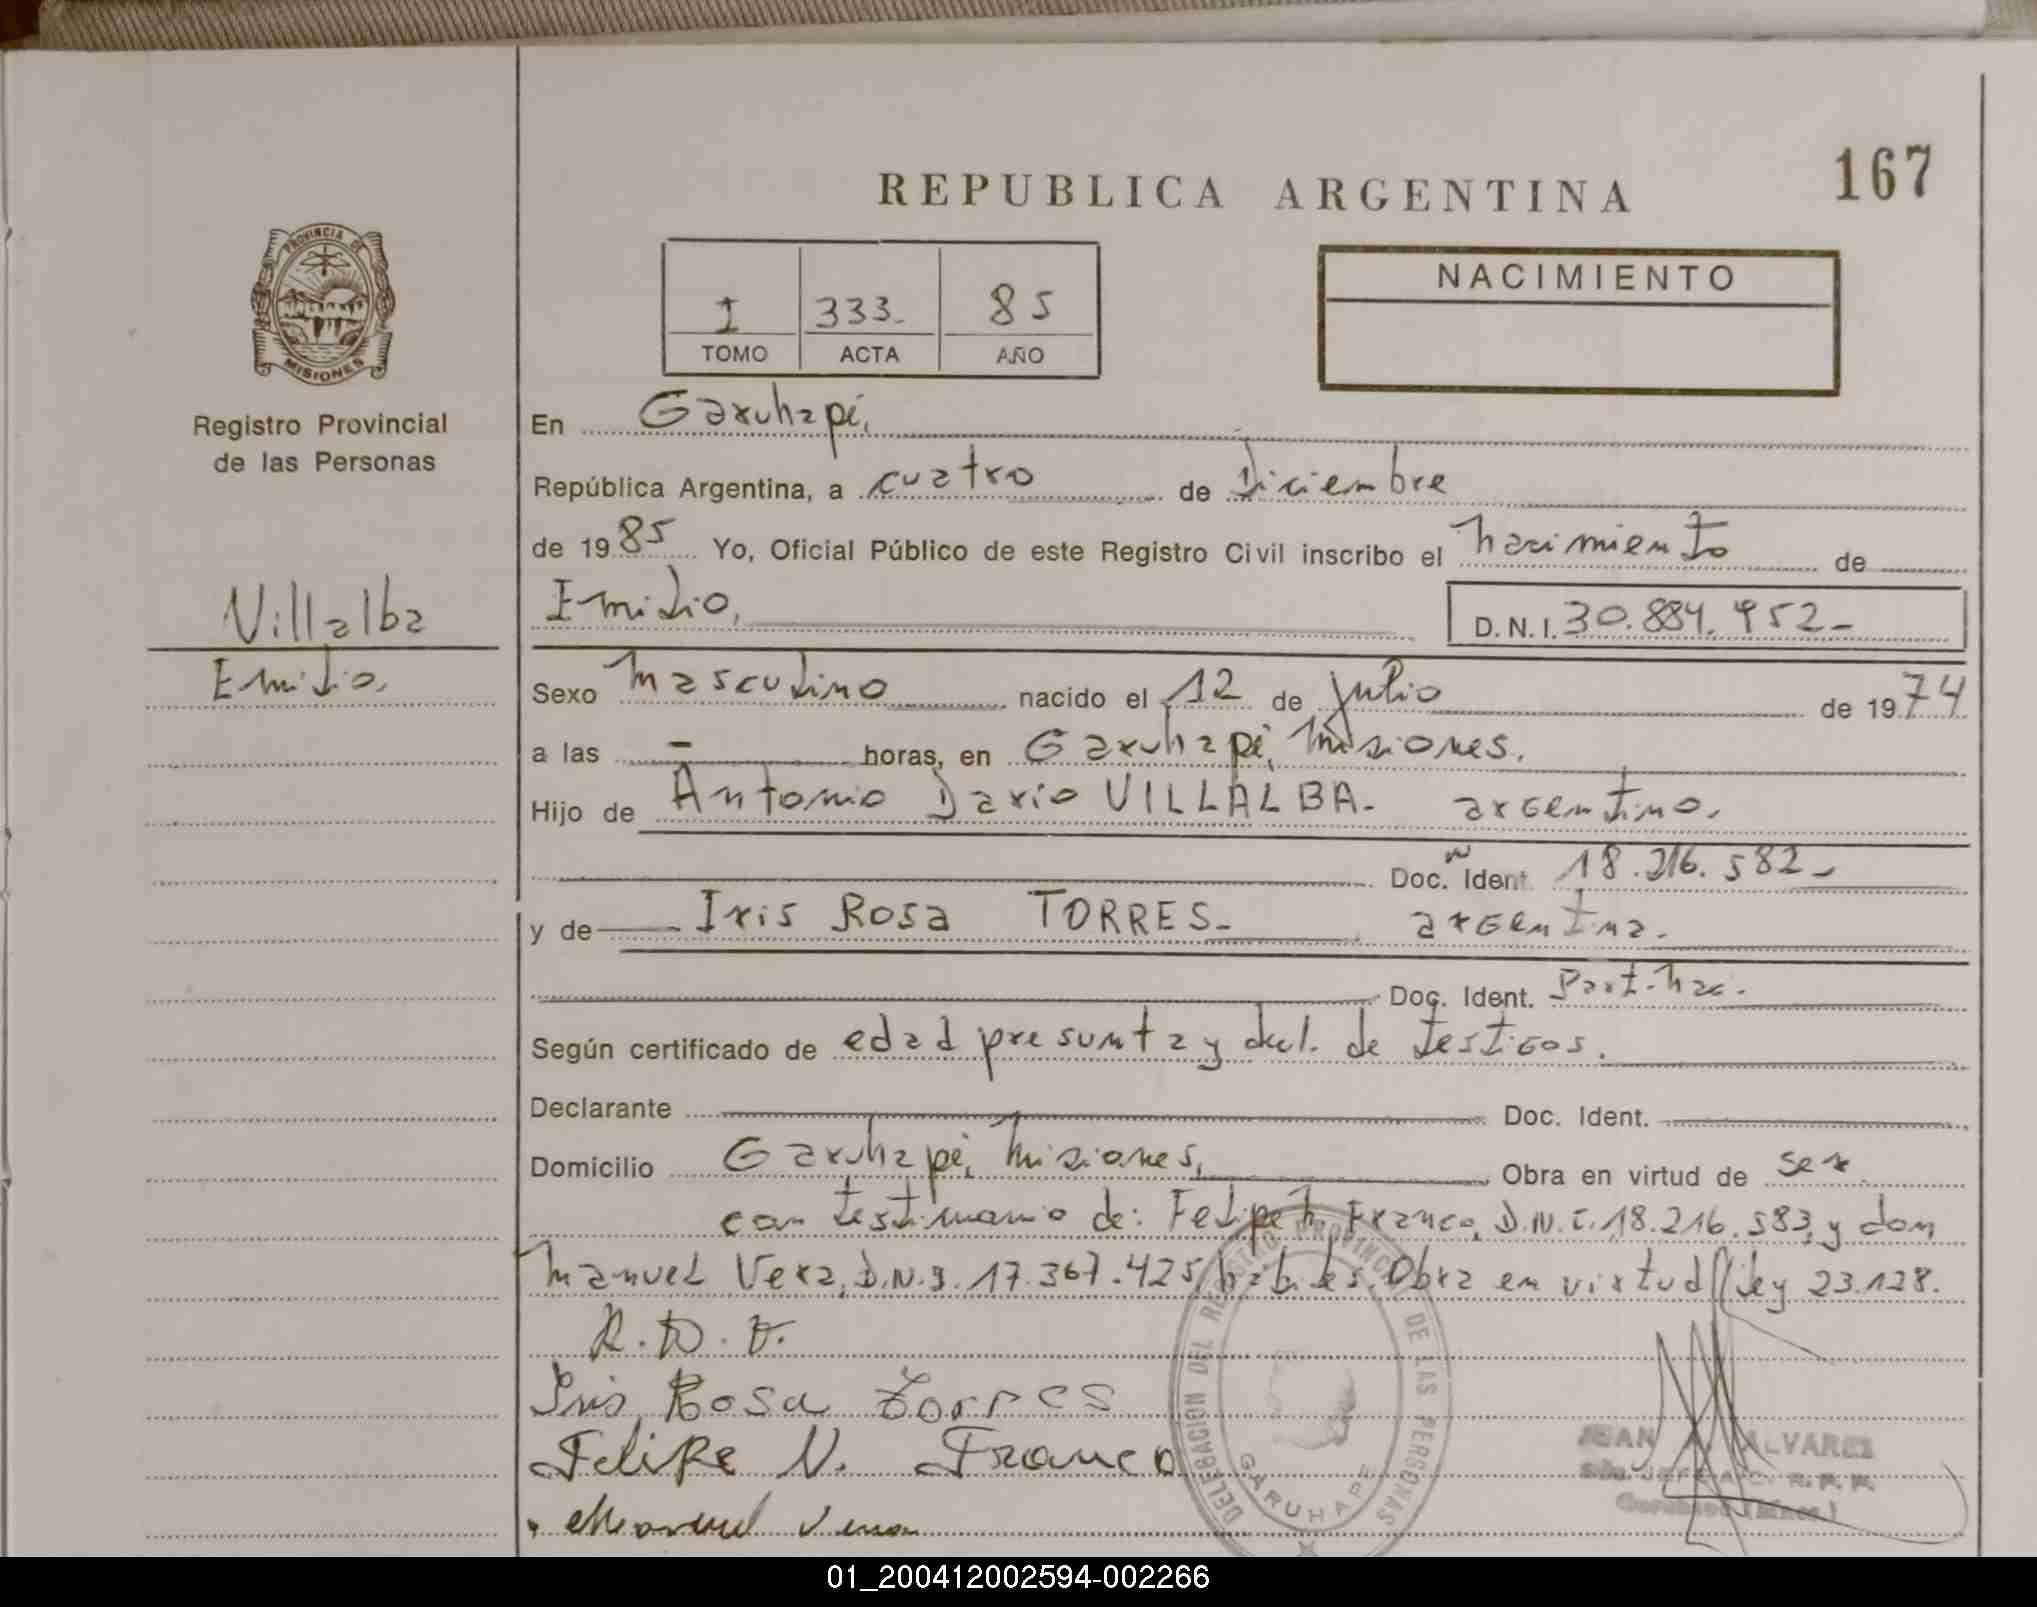 REPUBLICA ARGENTINA
167
PROVINCIA DE
MISIONES
Registro Provincial
de las Personas
Villalba
Emilio.
I 333- 85
TOMO ACTA AÑO
NACIMIENTO
En Garuhapé,
República Argentina, a cuatro de Diciembre
de 1985 Yo, Oficial Público de este Registro Civil inscribo el nacimiento de
Emilio, D.N.I. 30.884.952-
Sexo masculino nacido el 12 de julio de 1974
a las - horas, en Garuhapé, Misiones.
Hijo de Antonio Dario VILLALBA- argentino.
Doc. Ident. 18.216.582-
y de Iris Rosa TORRES- argentina.
Doc. Ident. Part. Nac.
Según certificado de edad presunta y decl. de testigos.
Declarante Doc. Ident.
Domicilio Garuhapé, Misiones, Obra en virtud de ser
con testimonio de: Felipe N. Franco, D.N.I. 18.216.583, y don
Manuel Vera, D.N.I. 17.367.425, habiles. Obra en virtud ley 23.128.
A.D.V.
Iris Rosa Torres
Felipe N. Franco
Manuel Vera
DELEGACION DEL REGISTRO PROVINCIAL DE LAS PERSONAS
GARUHAPE
JUAN ALVAREZ
JEFE R.P.P.
01_200412002594-002266